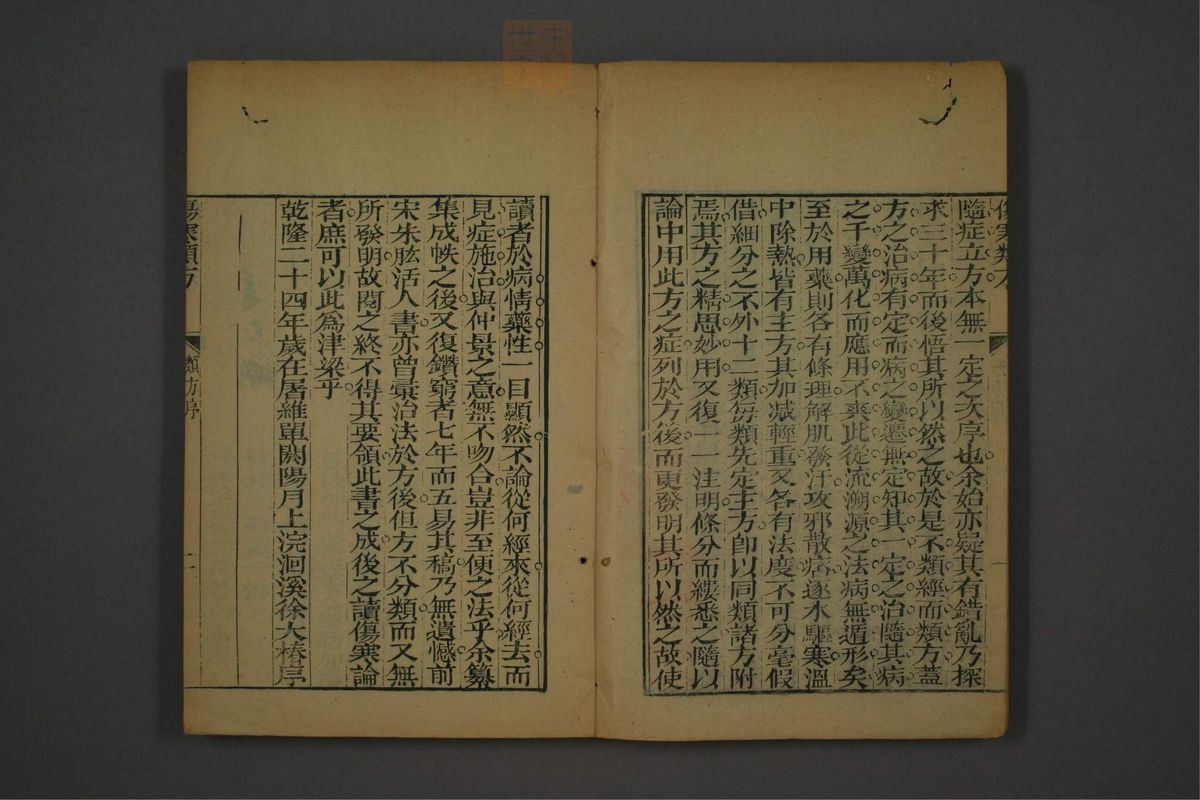 傷寒類方
隨症立方本無一定之次序也余始亦疑其有錯亂乃探
求三十年而後悟其所以然之故於是不類經而類方蓋
方之治病有定而病之變遷無定知其一定之治隨其病
之千變萬化而應用不爽此從流溯源之法病無遁形矣
至於用藥則各有條理解肌發汗攻邪散痞逐水驅寒溫
中除熱皆有主方其加減輕重又各有法度不可分毫假
借細分之不外十二類每類先定主方卽以同類諸方附
焉其方之精思妙用又復一一注明條分而縷悉之隨以
論中用此方之症列於方後而更發明其所以然之故使
讀者於病情藥性一目顯然不論從何經來從何經去而
見症施治與仲景之意無不吻合豈非至便之法乎余纂
集成帙之後又復鑽窮者七年而五易其稿乃無遺憾前
宋朱肱活人書亦曾彙治法於方後但方不分類而又無
所發明故閱之終不得其要領此書之成後之讀傷寒論
者庶可以此爲津梁乎
乾隆二十四年歲在屠維單閼陽月上浣洄溪徐大椿序
傷寒類方
類方序
二